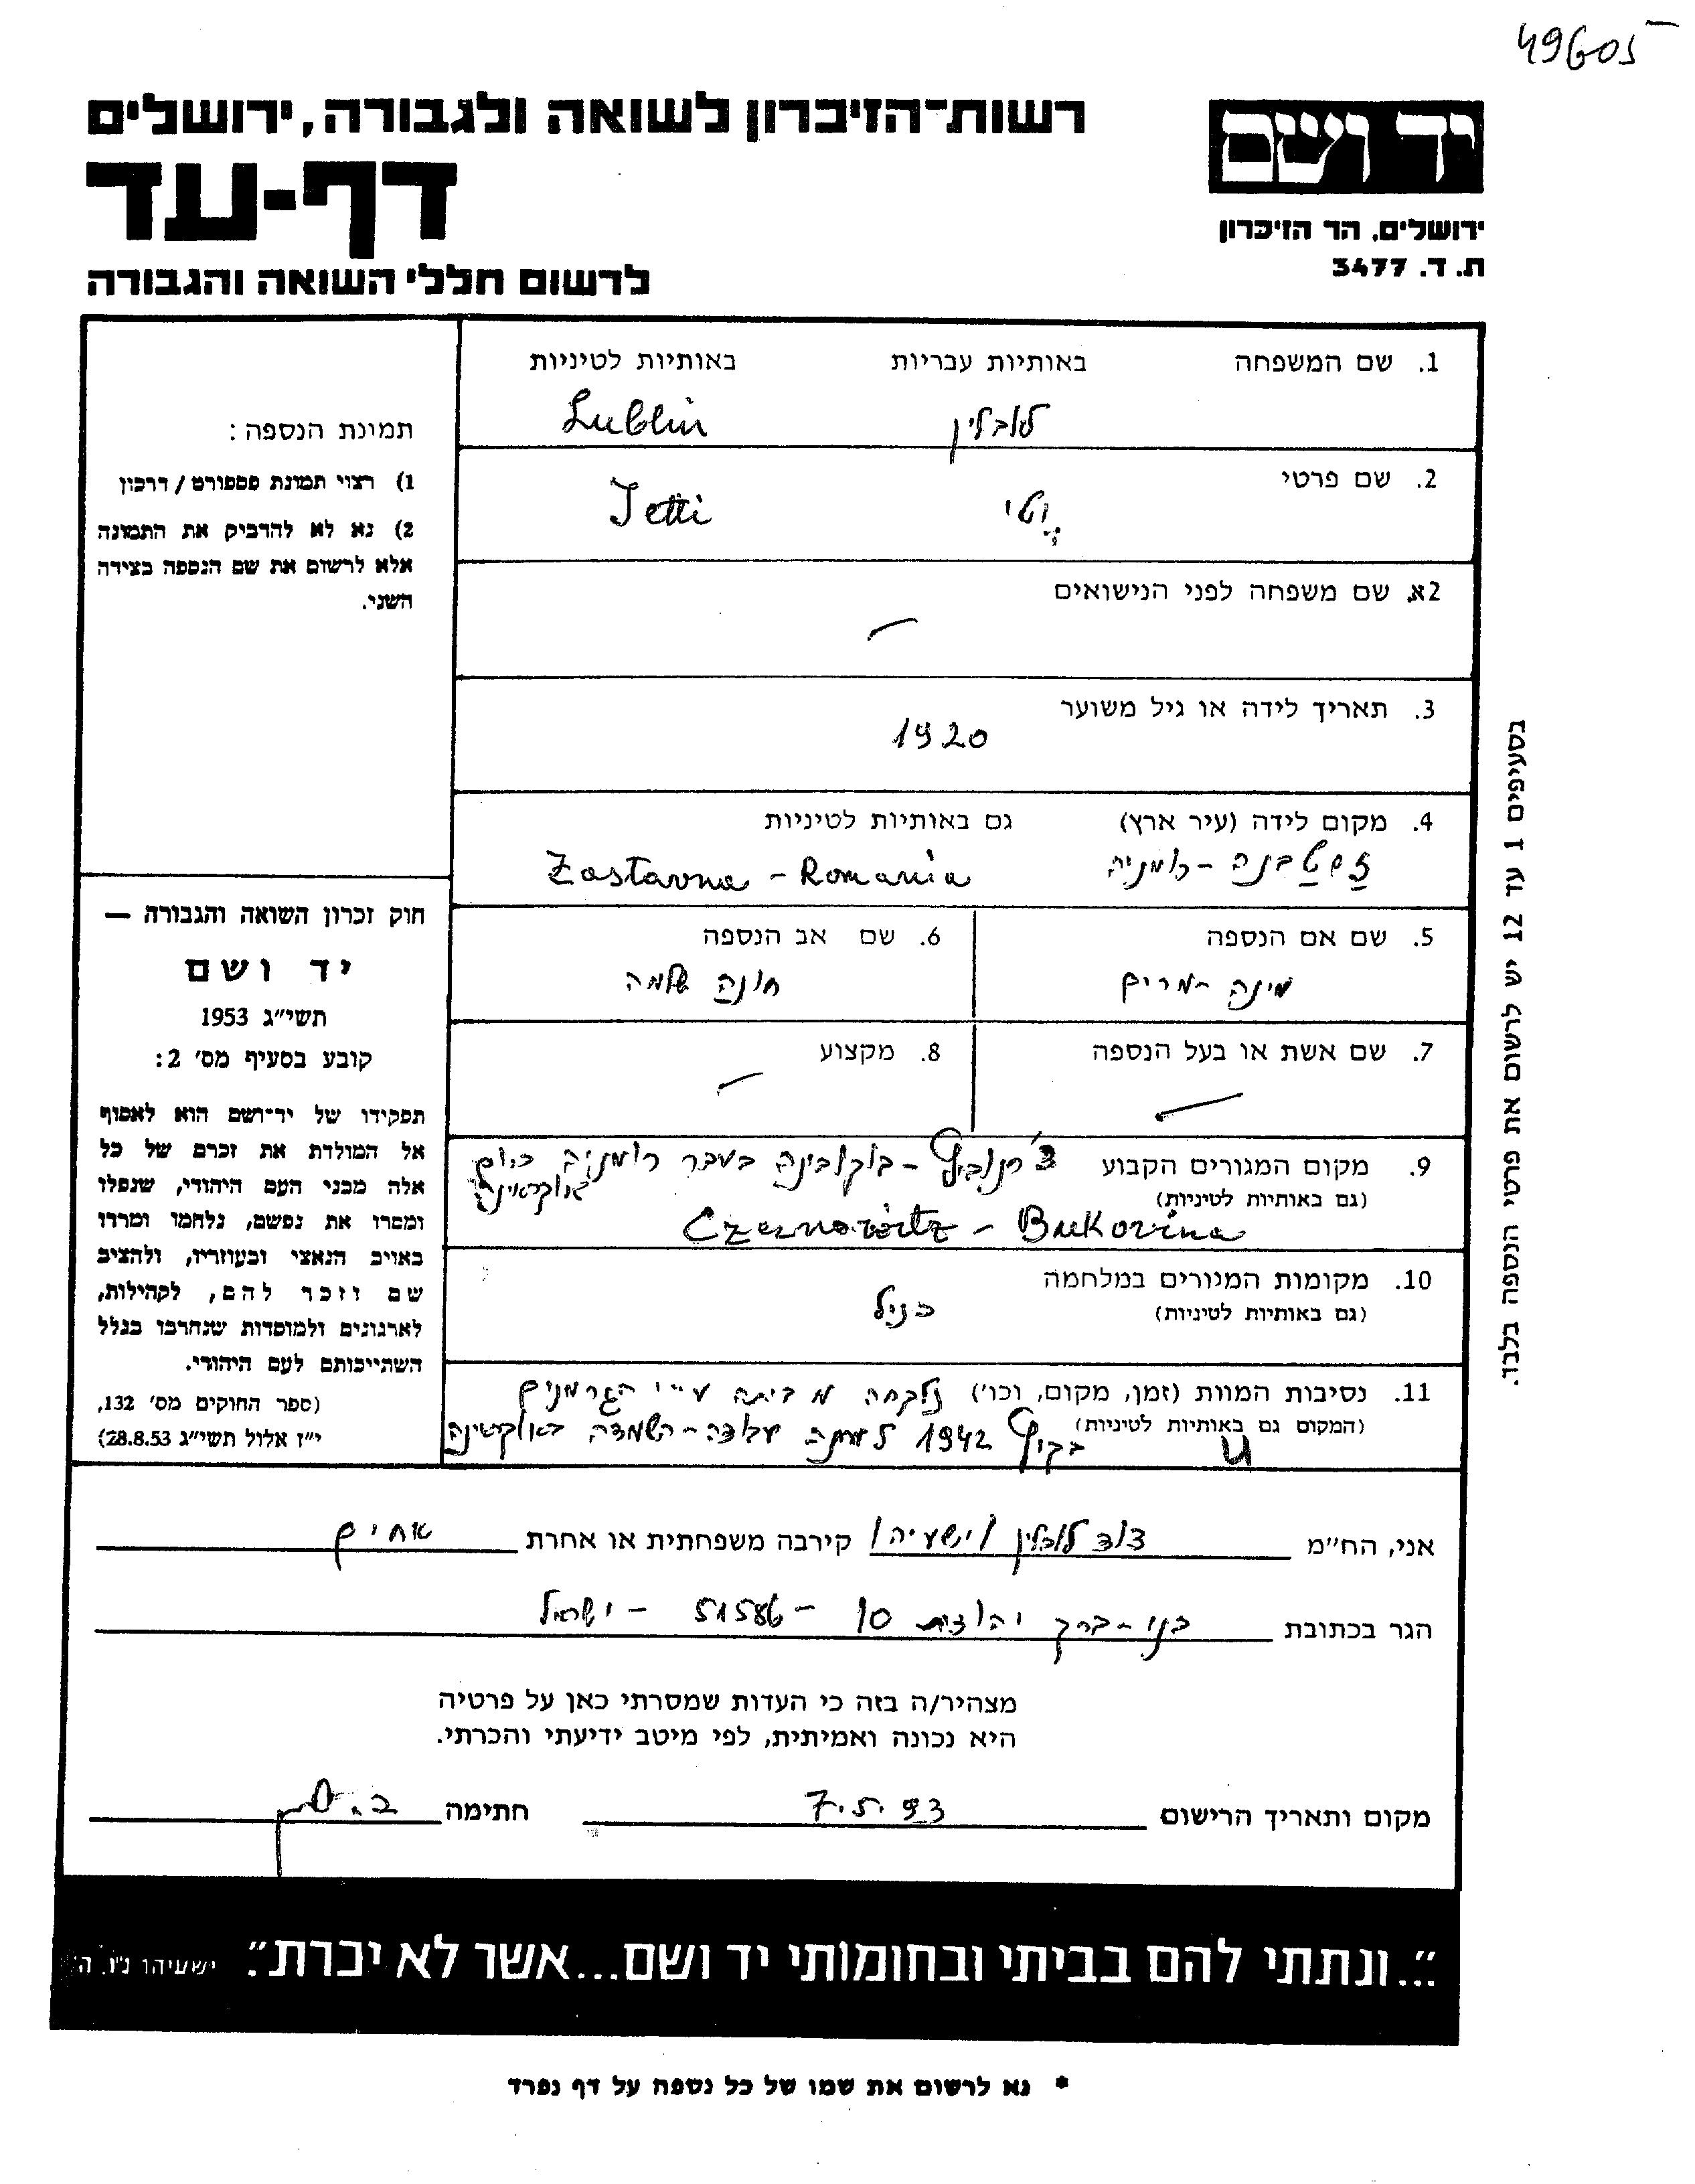 49605
יד ושם
ירושלים. הר הזיכרון
ת. ד. 3477
רשות־הזיכרון לשואה ולגבורה, ירושלים
דף-עד
לרשום חללי השואה והגבורה
1. שם המשפחה באותיות עבריות באותיות לטיניות
לובלין Lublin
2. שם פרטי
יטי Jetti
2א. שם משפחה לפני הנישואים
—
3. תאריך לידה או גיל משוער
1920
4. מקום לידה (עיר ארץ) גם באותיות לטיניות
זסטבנה - רומניה Zastavna - Romania
5. שם אם הנספה 6. שם אב הנספה
מינה - מרים חונה שלמה
7. שם אשת או בעל הנספה 8. מקצוע
— —
9. מקום המגורים הקבוע צ'רנוביץ - בוקובינה בעבר רומניה כיום
(גם באותיות לטיניות) אוקראינה
Czernowitz - Bukovina
10. מקומות המגורים במלחמה
(גם באותיות לטיניות) כנ"ל
11. נסיבות המוות (זמן, מקום, וכו') נלקחה מביתה ע"י הגרמנים
(המקום גם באותיות לטיניות) בקיץ 1942 למחנה עבודה - השמדה באוקראינה
תמונת הנספה:
1) רצוי תמונת פספורט / דרכון
2) נא לא להדביק את התמונה
אלא לרשום את שם הנספה בצידה
השני.
חוק זכרון השואה והגבורה —
יד ושם
תשי"ג 1953
קובע בסעיף מס' 2:
תפקידו של יד־ושם הוא לאסוף
אל המולדת את זכרם של כל
אלה מבני העם היהודי, שנפלו
ומסרו את נפשם, נלחמו ומרדו
באויב הנאצי ובעוזריו, ולהציב
שם וזכר להם, לקהילות,
לארגונים ולמוסדות שנחרבו בגלל
השתייכותם לעם היהודי.
(ספר החוקים מס' 132,
י"ז אלול תשי"ג 28.8.53)
בסעיפים 1 עד 12 יש לרשום את פרטי הנספה בלבד.
אני, הח"מ דוד לובלין /ישעיה/ קירבה משפחתית או אחרת אחים
הגר בכתובת בני - ברק יהודית 10 - 51586 - ישראל
מצהיר/ה בזה כי העדות שמסרתי כאן על פרטיה
היא נכונה ואמיתית, לפי מיטב ידיעתי והכרתי.
מקום ותאריך הרישום 7.5.93 חתימה
"...ונתתי להם בביתי ובחומותי יד ושם...אשר לא יכרת". ישעיהו נ"ו, ה'
* נא לרשום את שמו של כל נספה על דף נפרד